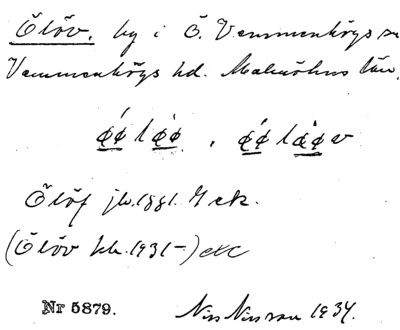 Ölöv, by i Ö. Vemmenhögs sn
Vemmenhögs hd. Malmöhus län,
Ölöf jb. 1881. 4 ek.
(Ölöv kb. 1931-) etc
Nr 5879. Nils Nilsson 1934.